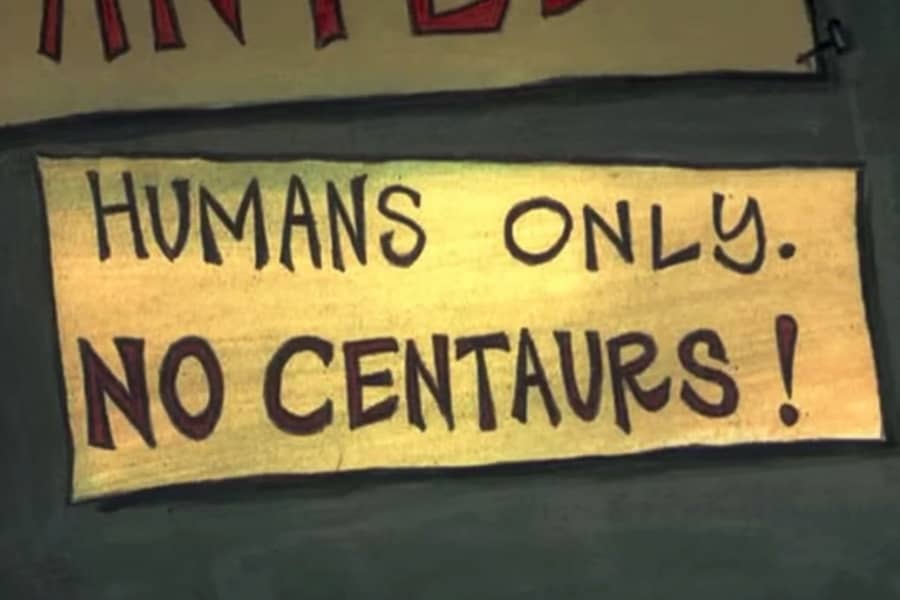 HUMANS ONLY.
NO CENTAURS!